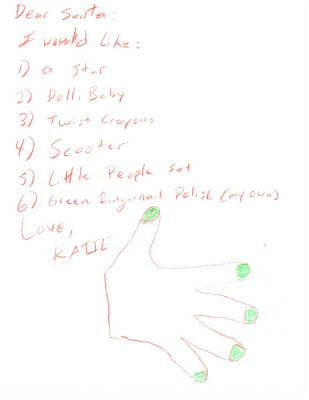 Dear Santa:
I would Like:
1) a Star
2) Doll, Baby
3) Twist Crayons
4) Scooter
5) Little People set
6) Green fingernail Polish (my own)
Love,
KATIE